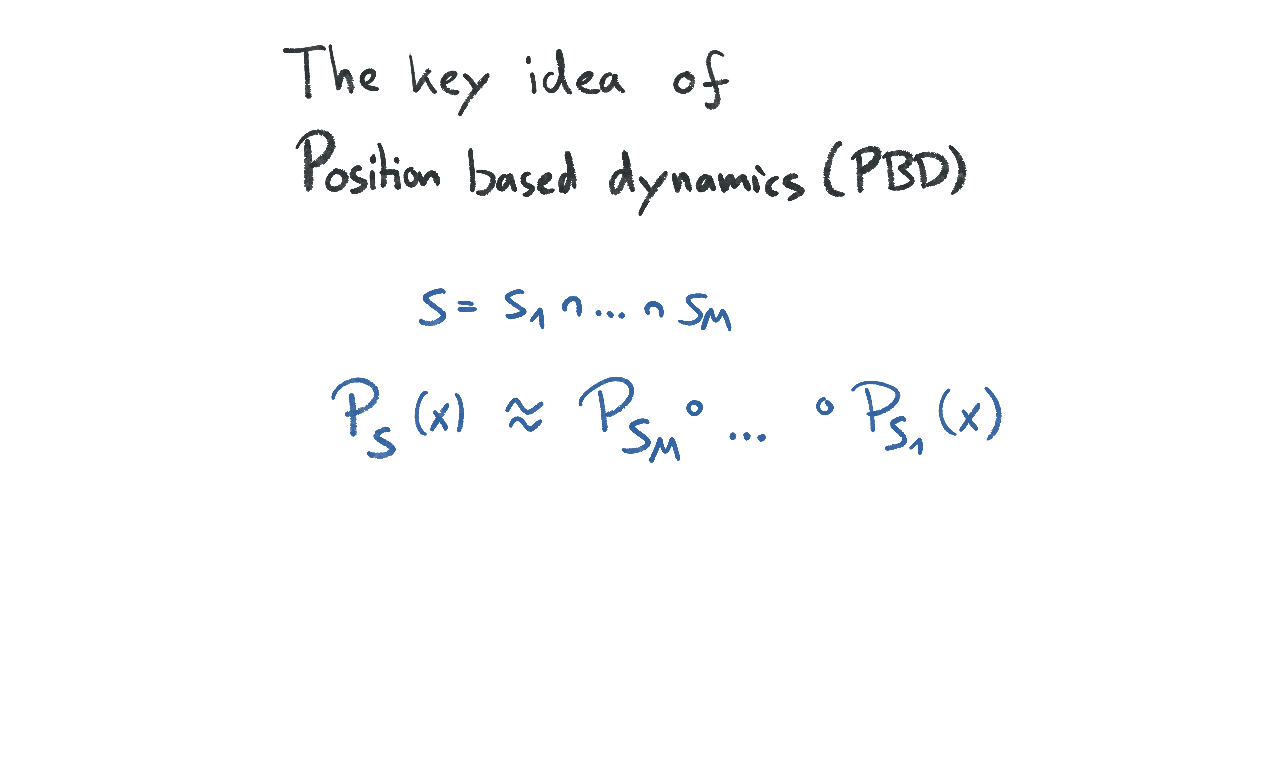 The key idea of
Position based dynamics (PBD)
S = S₁ ∩ ... ∩ S_M
P_S (x) ≈ P_{S_M} ∘ ... ∘ P_{S₁} (x)